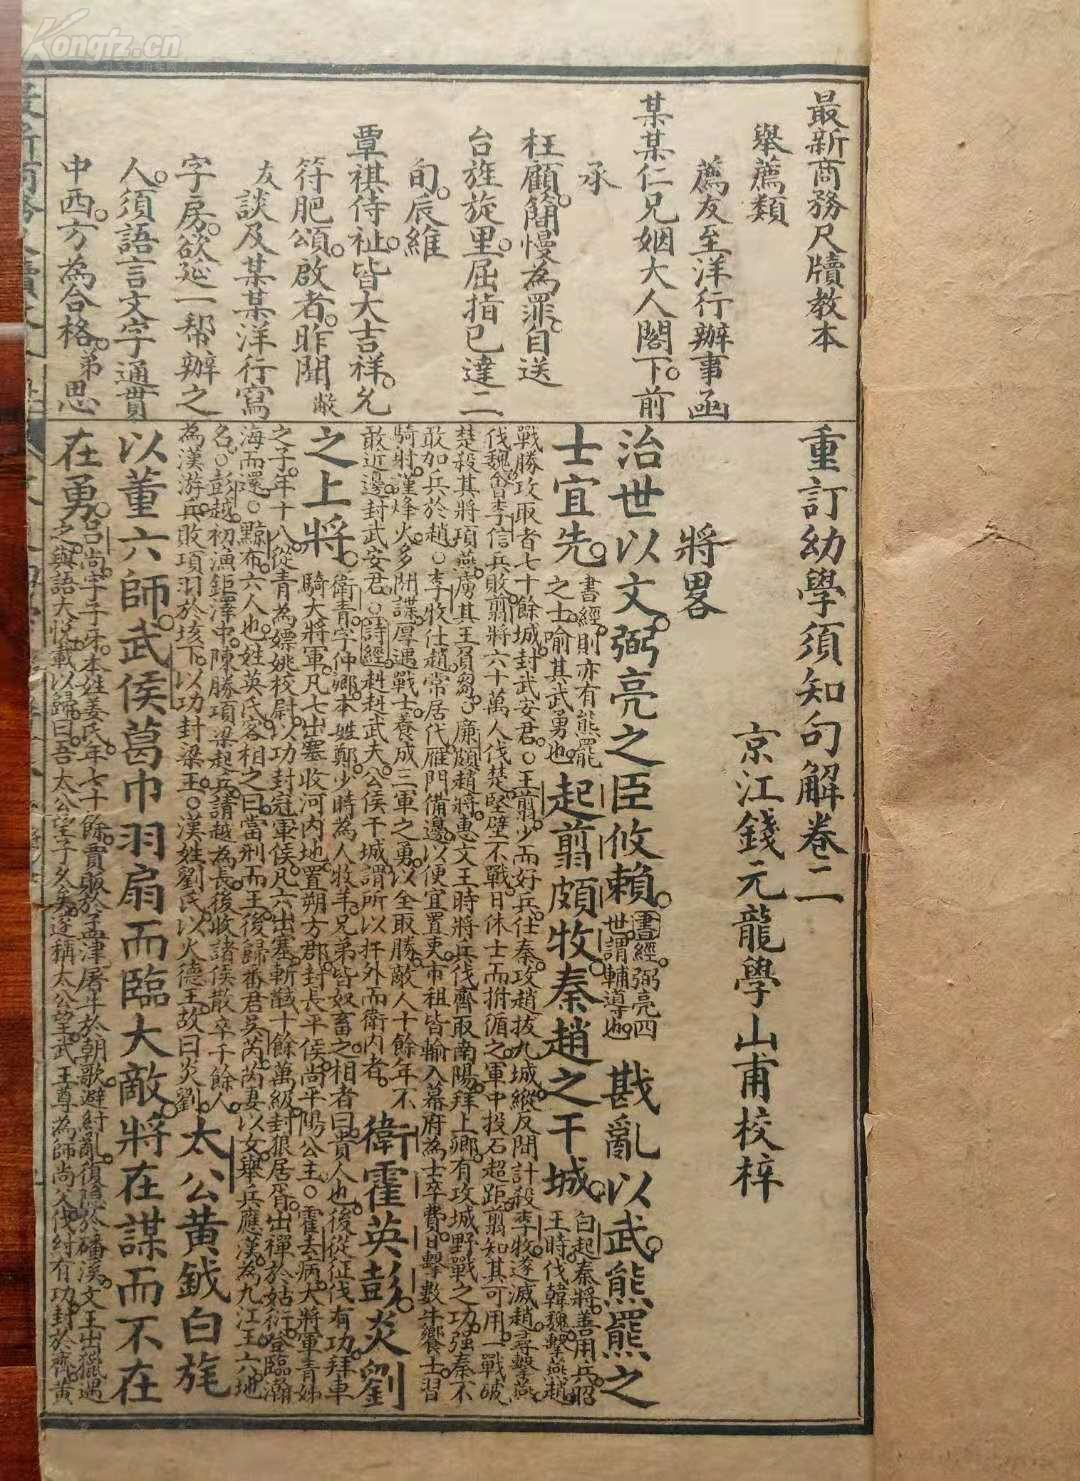 Kongfz.cn
最新商務尺牘教本
舉薦類
薦友至洋行辦事函
某某仁兄姻大人閣下。前
承
枉顧。簡慢為罪。自送
台旌旋里。屈指已達二
旬。辰維
覃祺侍祉。皆大吉祥。允
符肥頌。啟者。昨聞敝
友談及某某洋行寫
字房。欲延一帮辦之
人。須語言文字通貫
中西。方為合格。弟思
重訂幼學須知句解卷二
京江錢元龍學山甫校梓
將畧
治世以文。弼亮之臣攸賴。書經。弼亮四世。謂輔導也。戡亂以武。熊羆之
士宜先。書經。則亦有熊羆之士。喻其武勇也。起翦頗牧。秦趙之干城。白起。秦將。善用兵。昭王時。伐韓魏。擊燕趙。
戰勝攻取者七十餘城。封武安君。○王翦。少而好兵。仕秦。攻趙。拔九城。縱反間計。殺李牧。遂滅趙。尋擊燕。
伐魏。會李信兵敗。翦將六十萬人伐楚。堅壁不戰。日休士而拊循之。軍中投石超距。翦知其可用。一戰破
楚。殺其將項燕。虜其王負芻。廉頗。趙將。惠文王時。將兵伐齊。取南陽。拜上卿。有攻城野戰之功。強秦不
敢加兵於趙。○李牧。仕趙。常居代雁門備邊。以便宜置吏。市租皆輸入幕府。為士卒費。日擊數牛饗士。習
騎射。謹烽火。多間諜。厚遇戰士。養成三軍之勇。以全取勝。敵人十餘年不
敢近邊。封武安君。○詩經。赳赳武夫。公侯干城。謂所以扞外而衛內者。衛霍英彭。炎劉
之上將。衛青。字仲卿。本姓鄭。少時為人牧羊。兄弟皆奴畜之。相者曰。貴人也。後從征伐有功。拜車騎大將軍。凡七出塞。收河內地。置朔方郡。封長平侯。尚平陽公主。○霍去病。大將軍青姊
之子。年十八。從青為嫖姚校尉。以功封冠軍侯。凡六出塞。斬馘十餘萬級。封狼居胥。出禪於姑衍。登臨瀚
海而還。○黥布。六人也。姓英氏。客相之曰。當刑而王。後歸番君吳芮。芮妻以女。舉兵應漢。為九江王。六地
名。○彭越。初漁鉅澤中。陳勝項梁起兵。請越為長。後收諸侯散卒千餘人
為漢游兵。敗項羽於垓下。以功封梁王。○漢姓劉氏。以火德王。故曰炎劉。太公黃鉞白旄
以董六師。武侯葛巾羽扇而臨大敵。將在謀而不在
在勇。呂尚。字子牙。本姓姜氏。年七十餘。賣販於孟津。屠牛於朝歌。避紂亂。復隱於磻溪。文王出獵。遇之。與語大悅。載以歸。曰。吾太公望子久矣。遂稱太公望。武王尊為師尚父。伐紂有功。封於齊。黃